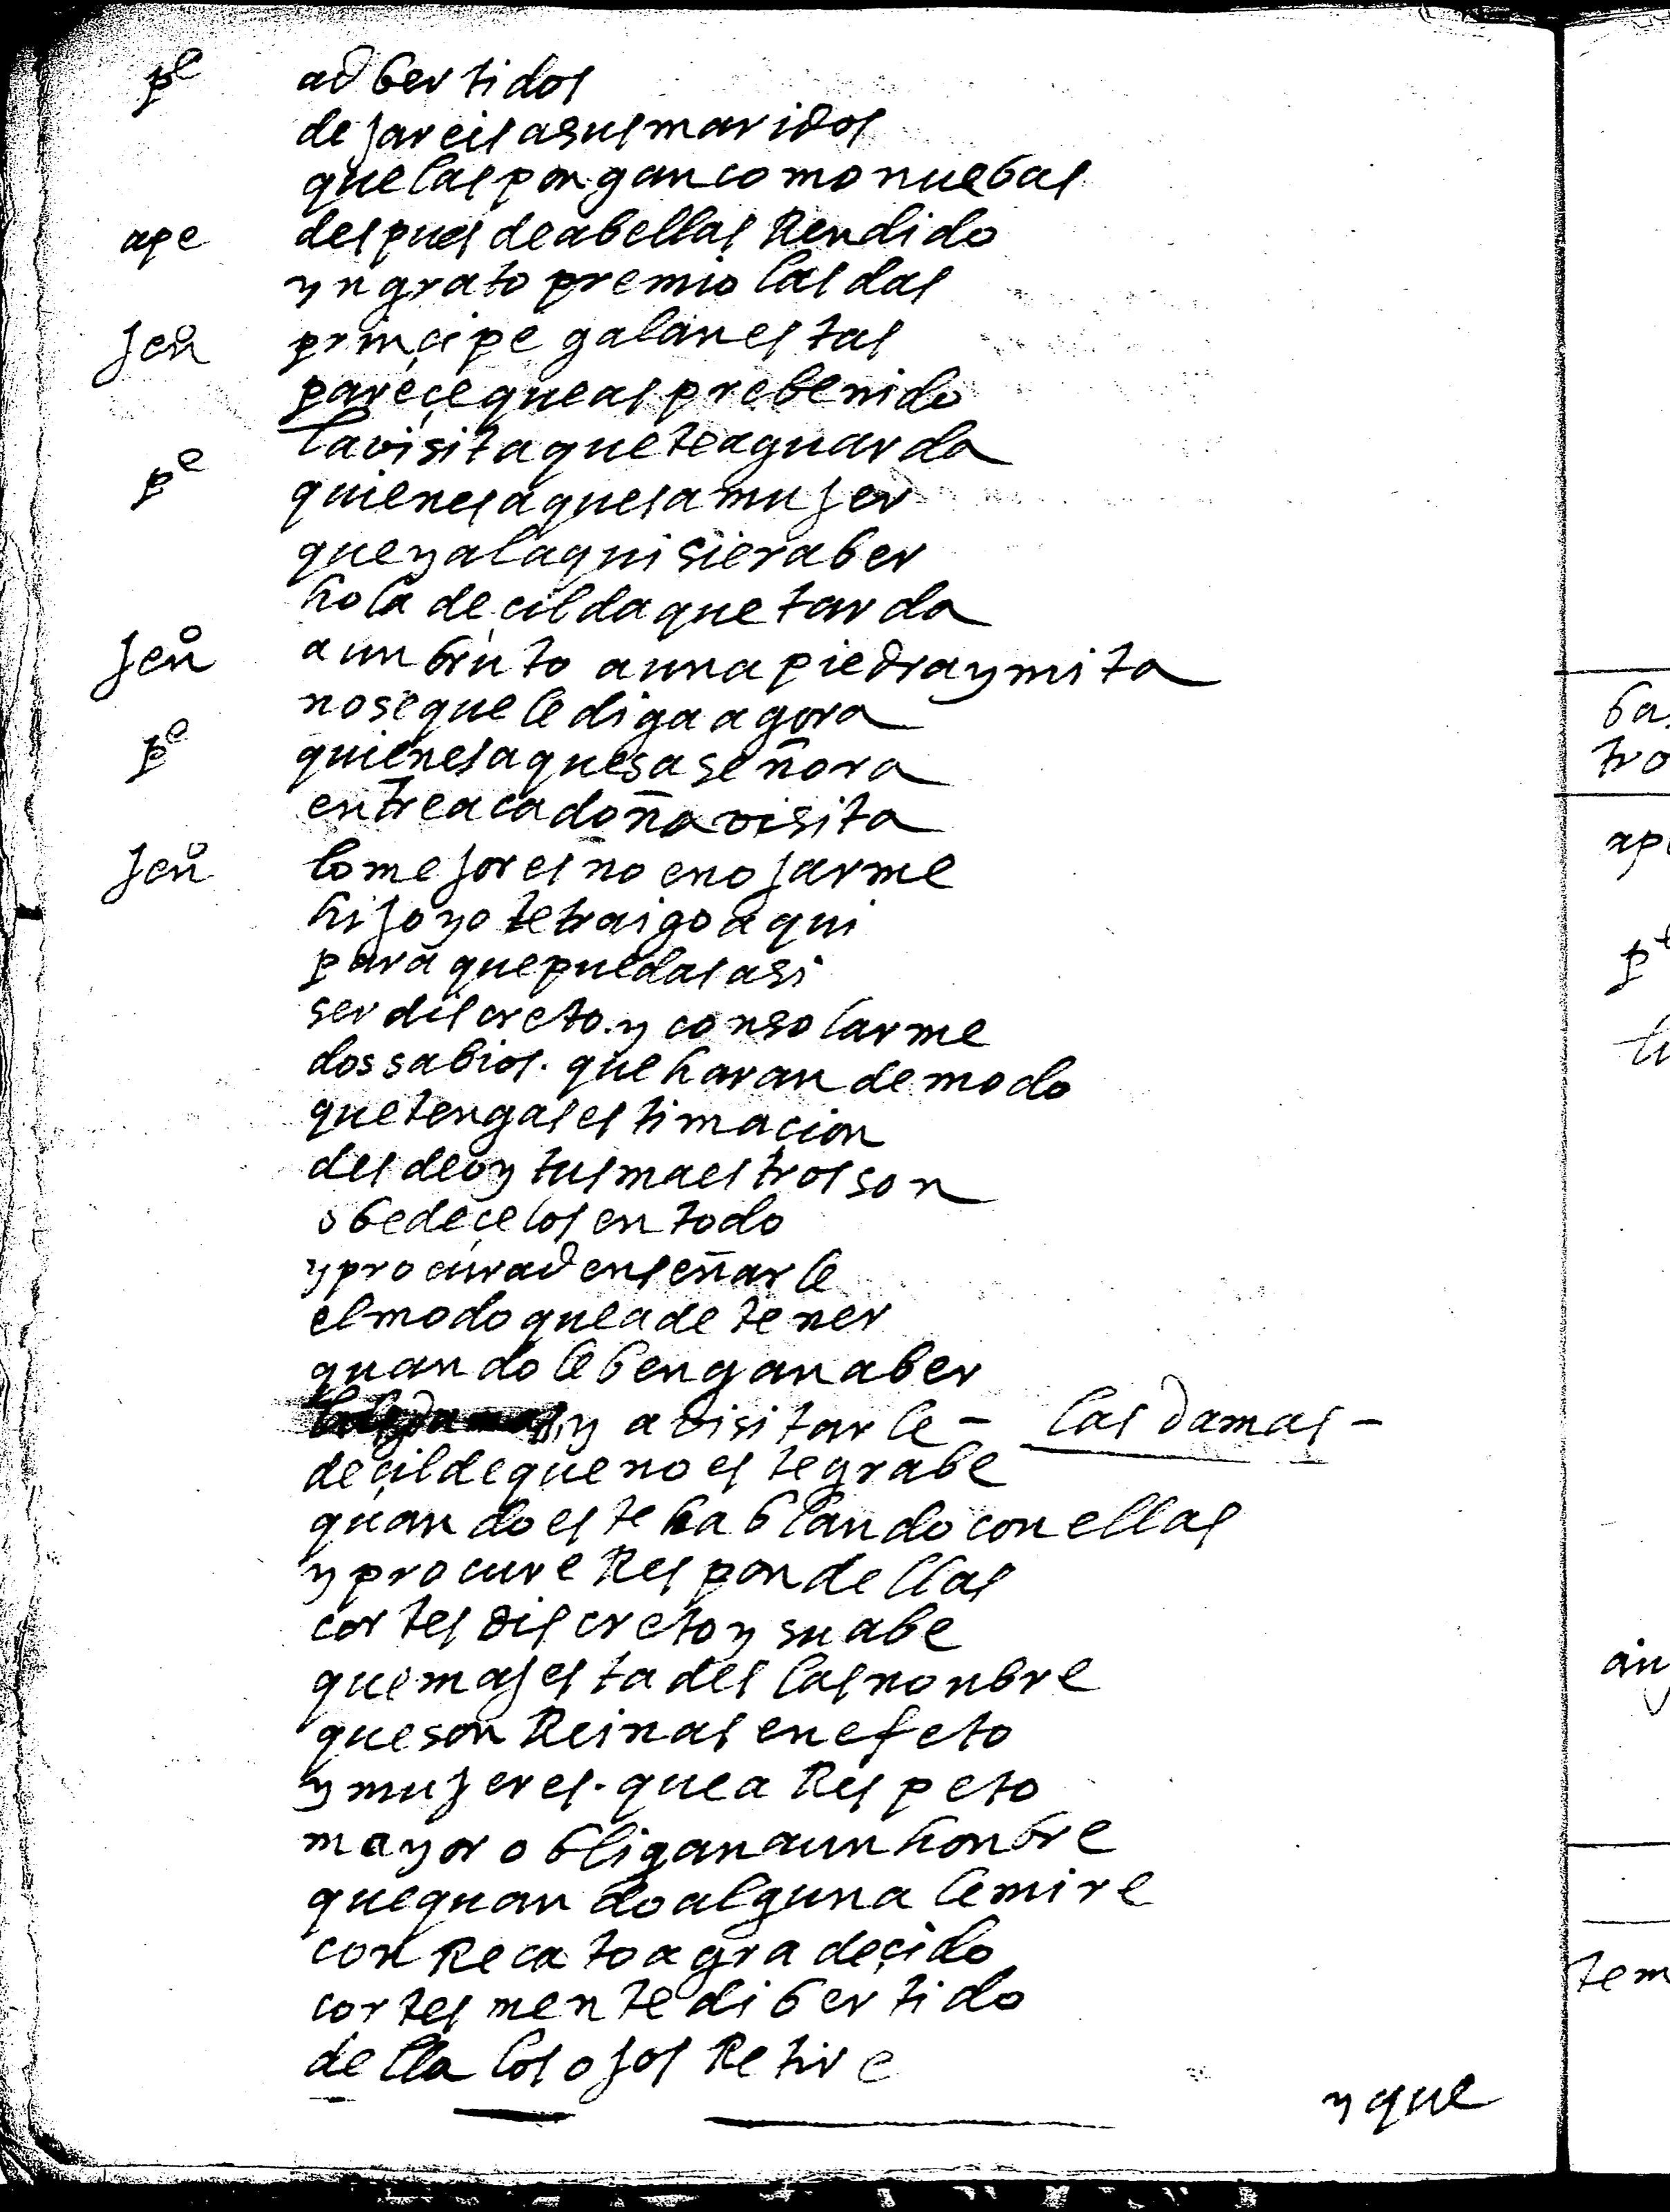 pe adbertidos
dejareis a sus maridos
que las pongan como nuebas
ape despues de abellas Rendido
yngrato premio las das
Jeñ principe galan estas
pareçe que as prebenido
la visita que te aguarda
pe quien es aquesa mujer
que ya la quisiera ber
hola deçilda que tarda
Jeñ a un bruto a una piedra ymita
no se que le diga agora
pe quien es aquesa señora
entre aca doña visita
Jeñ lo mejor es no enojarme
hijo yo te traigo aqui
para que puedas asi
ser discreto y consolarme
dos sabios. que haran de modo
que tengas estimaçion
desde oy tus maestros son
obedeçelos en todo
y procurad enseñarle
el modo que a de tener
quando le bengan a ber
y a visitarle - las damas -
deçilde que no este grabe
quando este hablando con ellas
y procure Respondellas
cortes discreto y suabe
que majestades las nonbre
que son Reinas en efeto
y mujeres. que a Respeto
mayor obligan a un honbre
que quando alguna le mire
con Recato agradeçido
cortesmente dibertido
della los ojos Retire
y que
ba
tro
ap
pe
tem